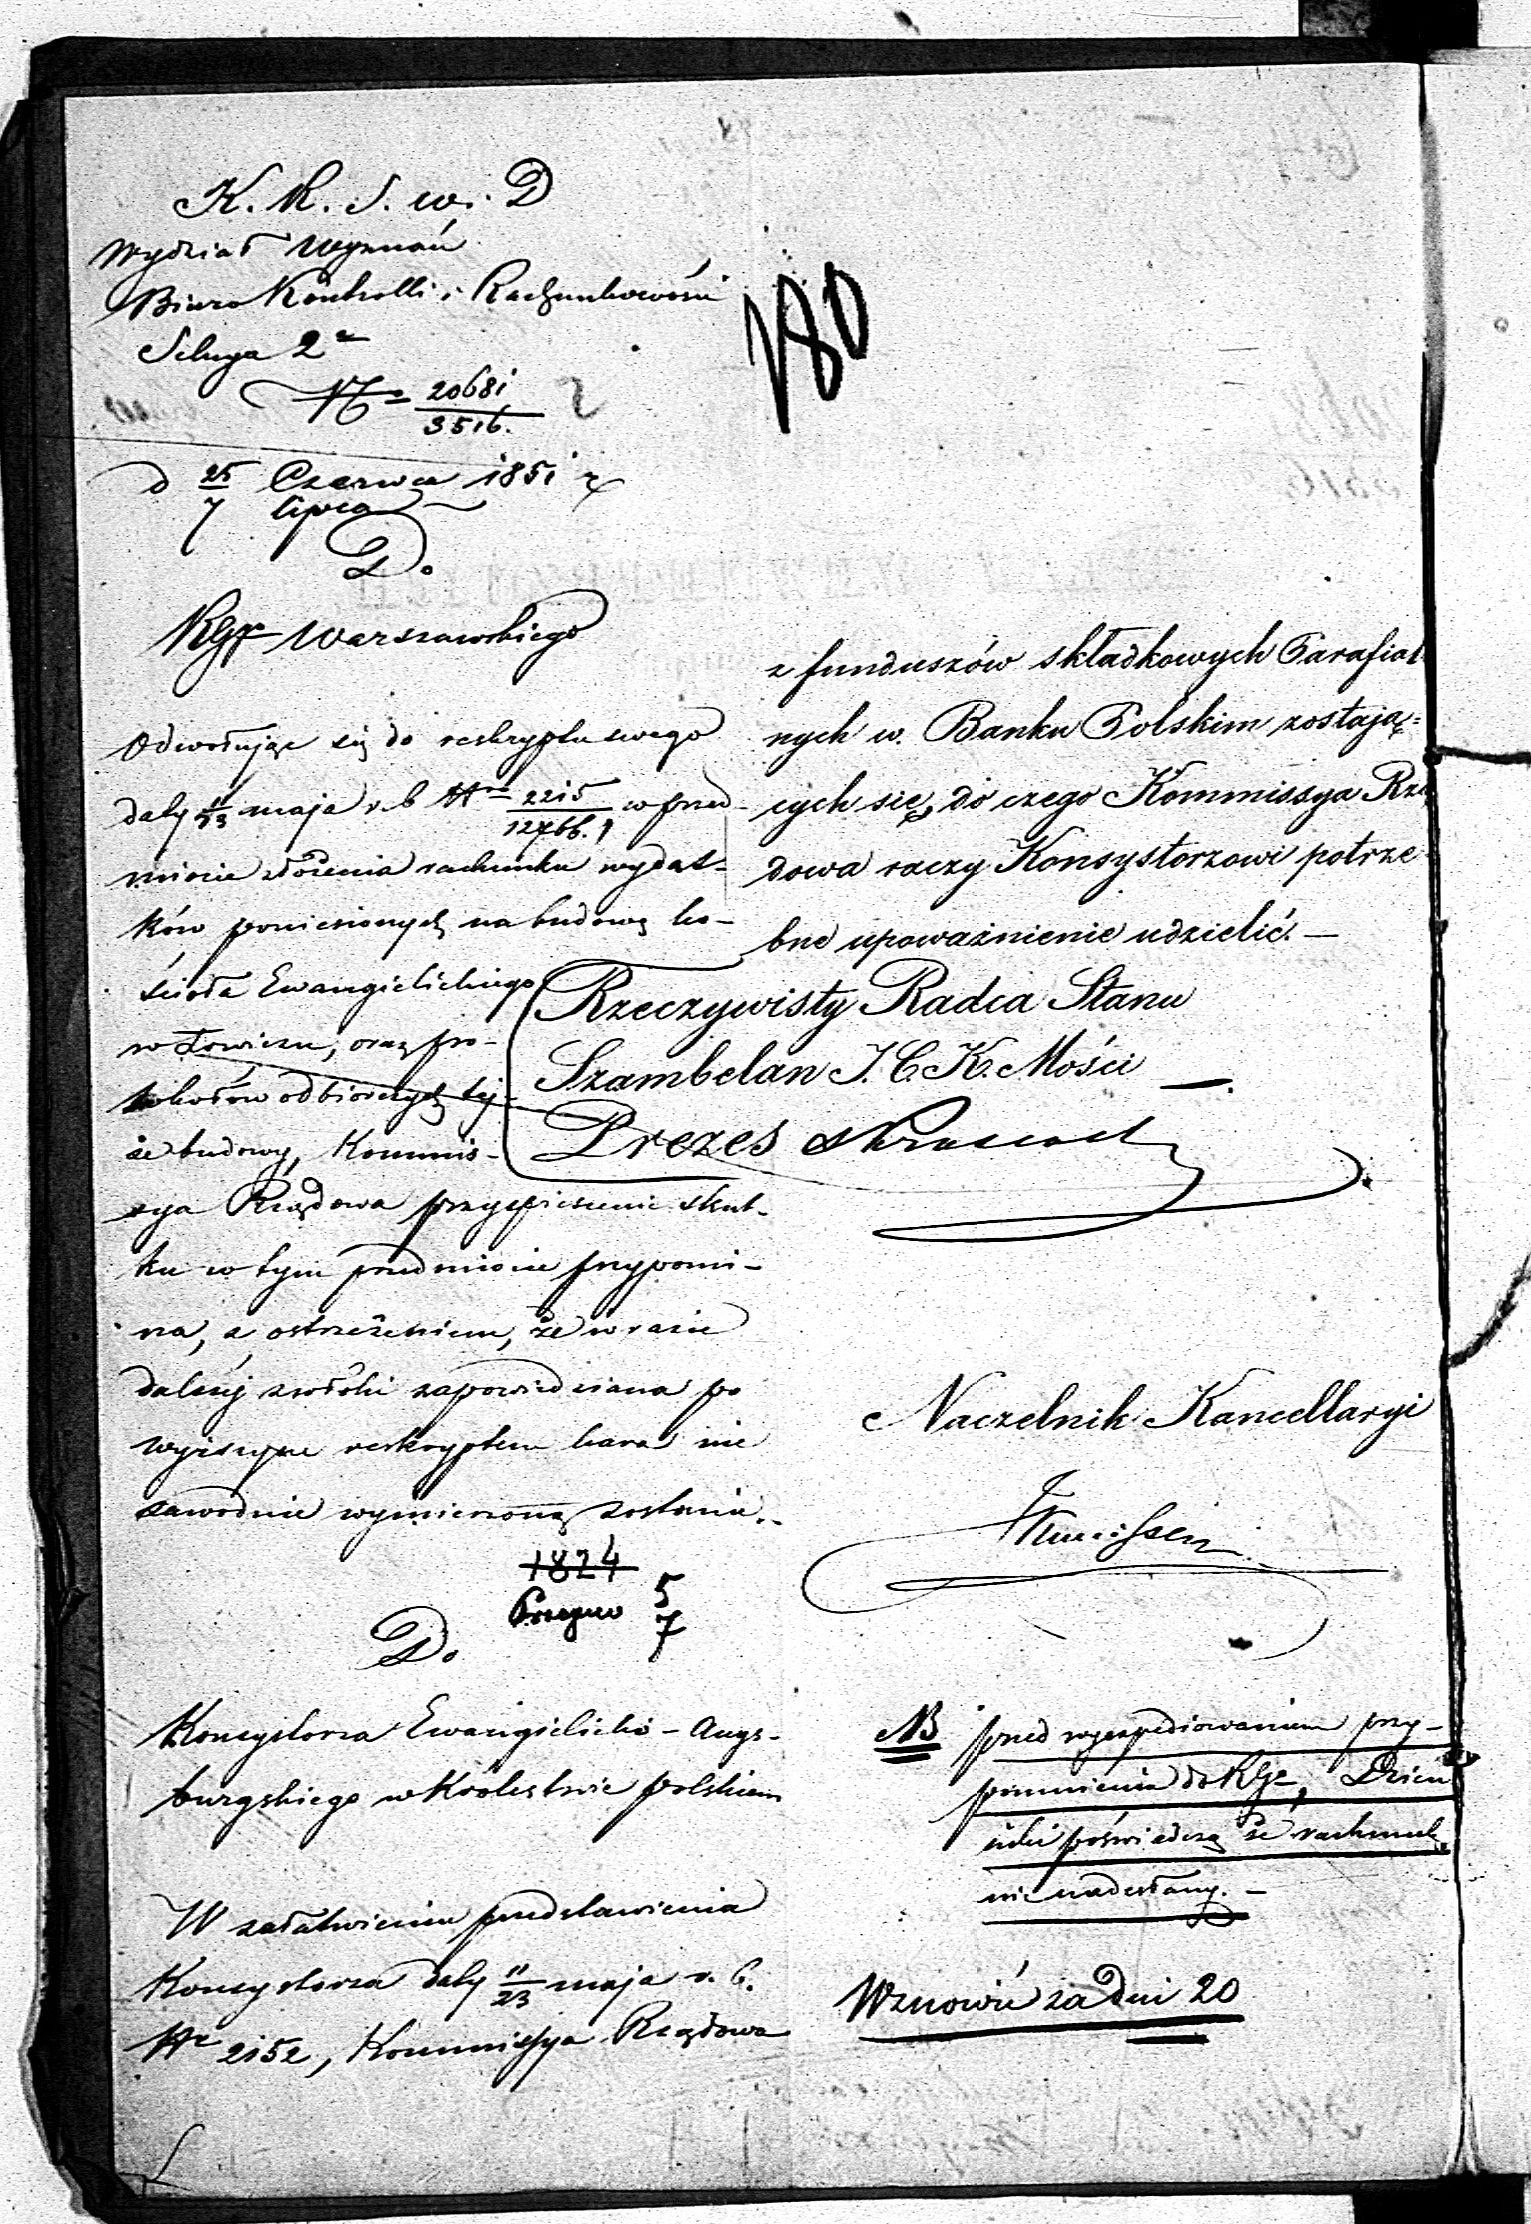 K. R. S. W. D
Wydział Wyznań
Biuro Kontrolli i Rachunkowości
Sekcya 2a
No 20681
3516.
d 25 Czerwca 1851 r
7 lipca
Do
RGu Warszawskiego
Odwołując się do reskryptu swego
daty 11/23 maja r. b Nr 2215/12766. w przed-
miocie złożenia rachunku wydat-
ków poniesionych na budowę ko-
ścioła Ewangielickiego
w Łowiczu, oraz pro-
tokołów odbiorczych tej-
że budowy, Kommis-
sya Rządowa przyspieszenie skut-
ku w tym przedmiocie przypomi-
na, z ostrzeżeniem, że w razie
dalszéj zwłoki zapowiedziana po
wyższym reskryptem kara nie
zawodnie wymierzoną zostanie.-
1824
5
7
Do
Konsystorza Ewangielicko-Augs-
burgskiego w Królestwie polskiem
W załatwieniu przedstawienia
Konsystorza daty 11/23 maja r. b.
Nr 2152, Kommissya Rządowa
180
z funduszów składkowych Parafial
nych w. Banku Polskim zostają=
cych się, do czego Kommissya Rzą
dowa raczy Konsystorzowi potrze-
bne upoważnienie udzielić.—
Rzeczywisty Radca Stanu
Szambelan J. C. K. Mości
Prezes
Naczelnik Kancellaryi
NB przed wyexpediowaniem przy-
pomnienia do RGu, Dzien
niki poświadczą że rachunek
nie nadesłany.-
Wznowić za dni 20